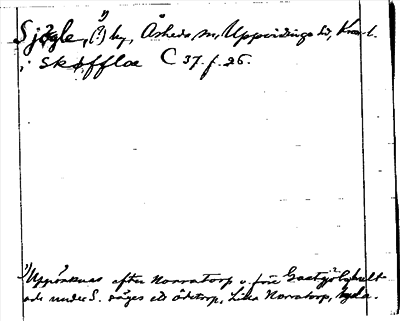 Sjögle, 1) (?) by, Åsheda sn, Uppvidinge hd, Kron. l.
i skøffloe C 37. f. 26.
1) Uppräknas efter Norratorp o. före Gastgjölshult
och under S. säges ett ödetorp, Lilla Norratorp, lyda.